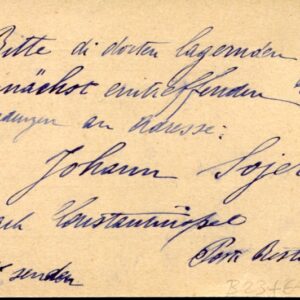 Bitte di dorten lagernden
nächst eintreffenden
an Adresse:
Johann Sojer
nach Constantinopel
Post Rest
senden